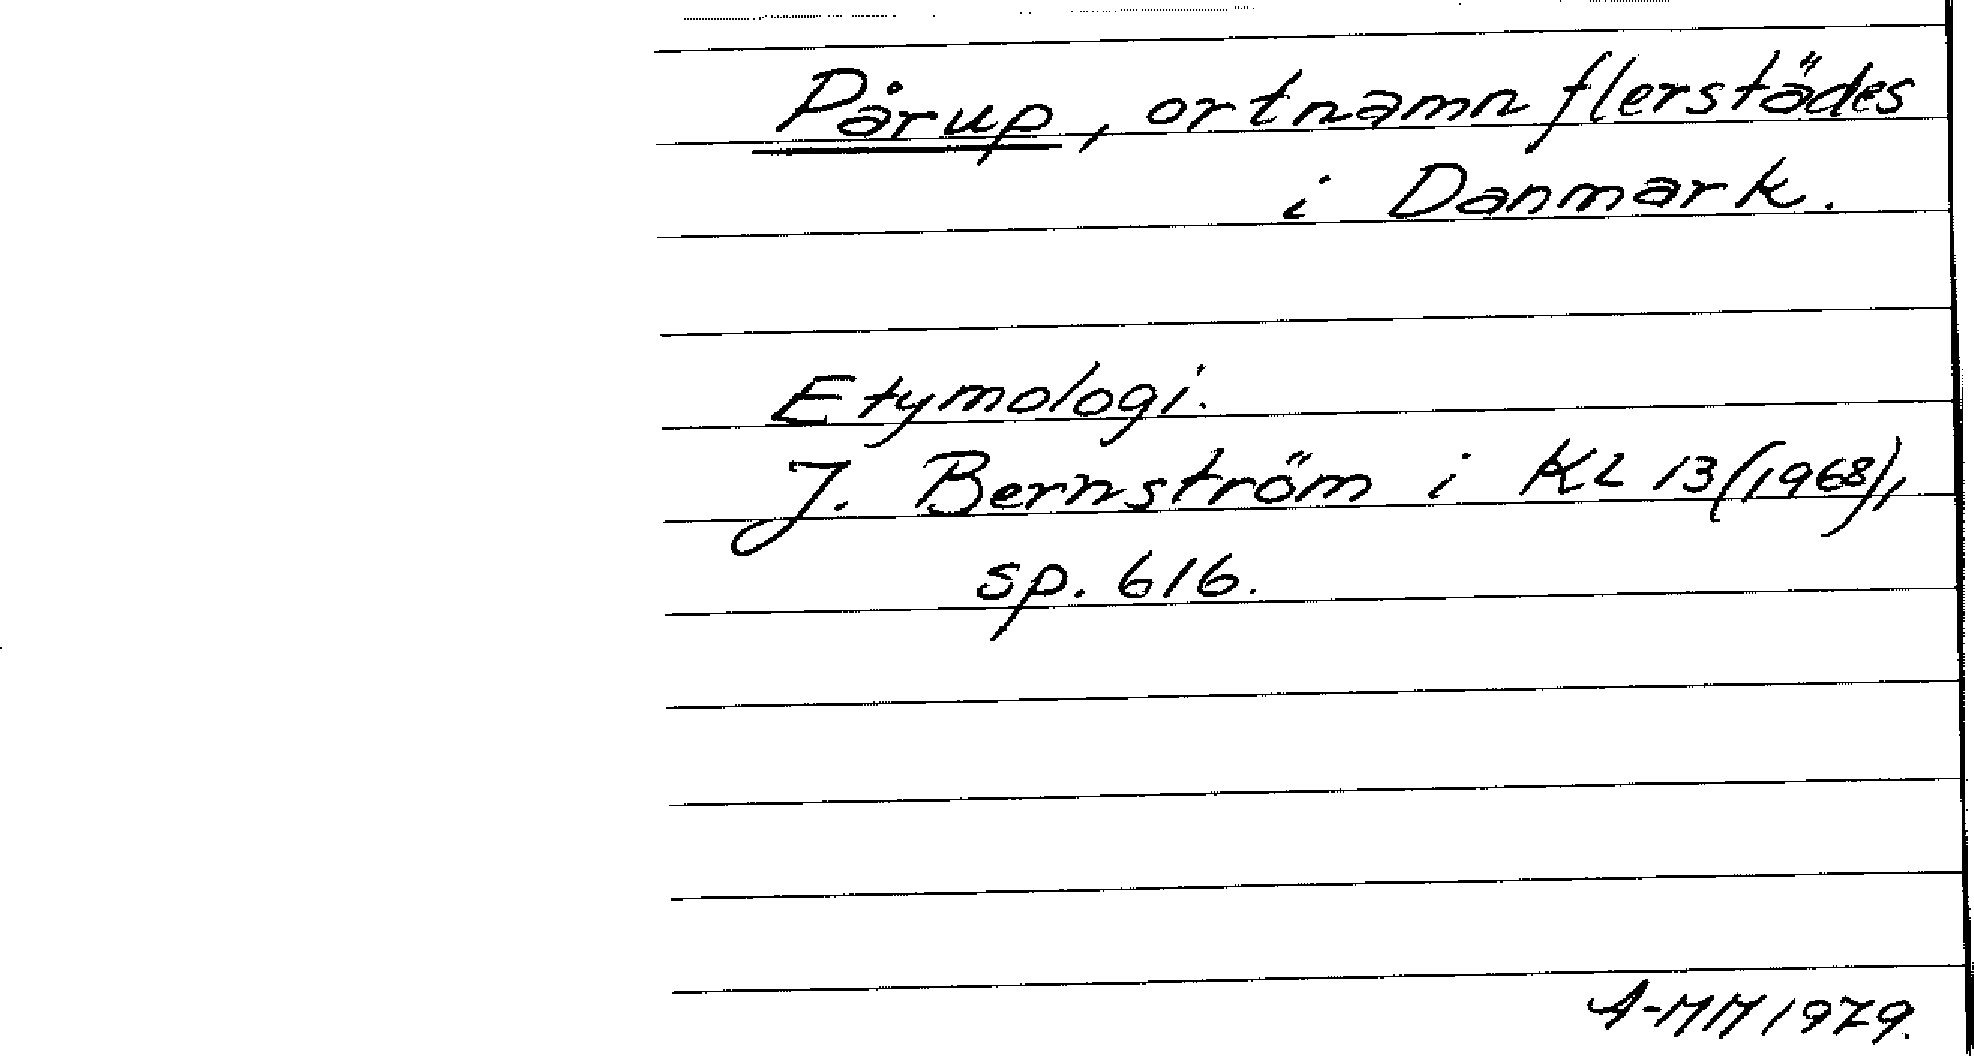 Pårup, ortnamn flerstädes
i Danmark.
Etymologi.
J. Bernström i KL 13 (1968),
sp. 616.
A-MM 1979.